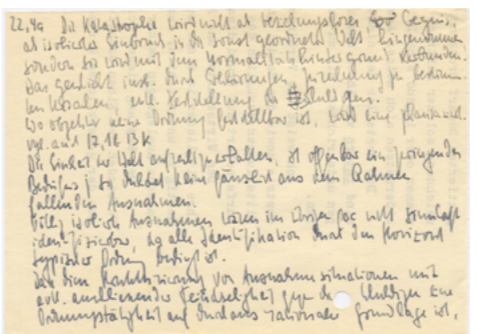 22,4a Die Katastrophe wird nicht als beziehungsloses Ereignis,
als isolierter Einbruch in die sonst geordnete Welt hingenommen
sondern sie wird mit dem Normalitätshintergrund verbunden.
Das geschieht insb. durch Erklärungen, Zurechnung zu bestimm-
ten Ursachen, evtl. Feststellung der Schuldigen.
Wo objektiv keine Ordnung feststellbar ist, wird eine
vgl. auch 17,1
Die Einheit der Welt aufrechtzuerhalten, ist offenbar ein zwingendes
Bedürfnis; sie duldet keine gänzlich aus dem Rahmen
fallenden Ausnahmen.
Völlig isolierte Ausnahmen wären im übrigen gar nicht sinnhaft
identifizierbar, da alle Identifikation durch den Horizont
typischer Ordnung bedingt ist.
von Ausnahmesituationen mit
evtl. ausbrechender Feindseligkeit gegen die Schuldigen eine
Ordnungstätigkeit auf durchaus rationaler Grundlage ist,